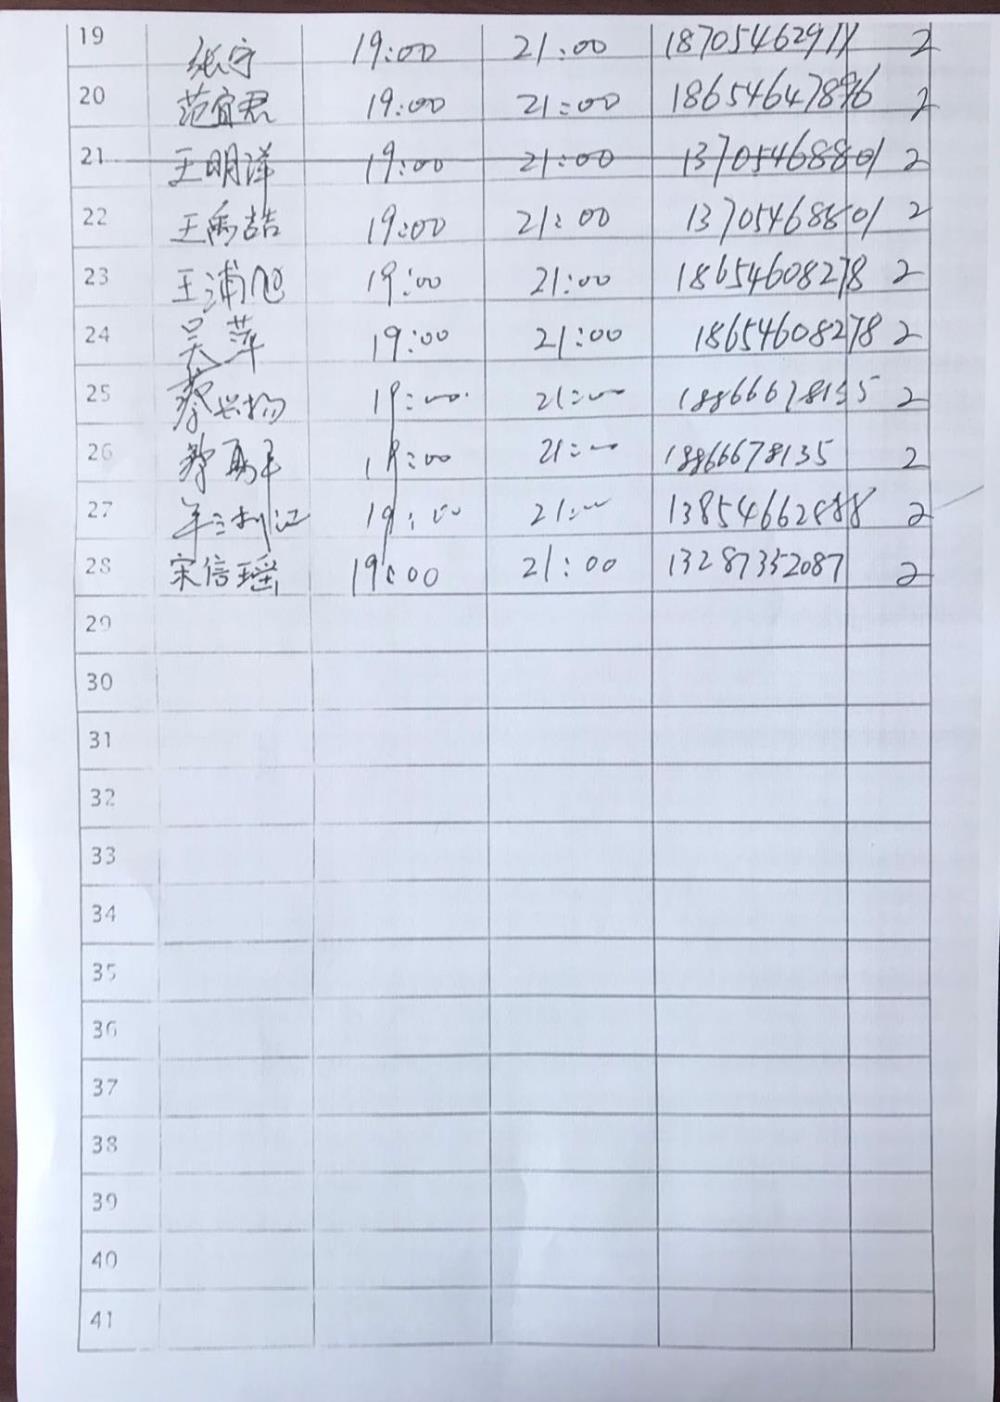 19 张宁 19:00 21:00 18705462911 2
20 范宜君 19:00 21:00 18654647896 2
21 王明洋 19:00 21:00 13705468801 2
22 王禹喆 19:00 21:00 13705468801 2
23 王浦旭 19:00 21:00 18654608278 2
24 吴萍 19:00 21:00 18654608278 2
25 19:00 21:00 18866678135 2
26 19:00 21:00 18866678135 2
27 19:00 21:00 13854662888 2
28 宋信瑶 19:00 21:00 13287352087 2
29
30
31
32
33
34
35
36
37
38
39
40
41